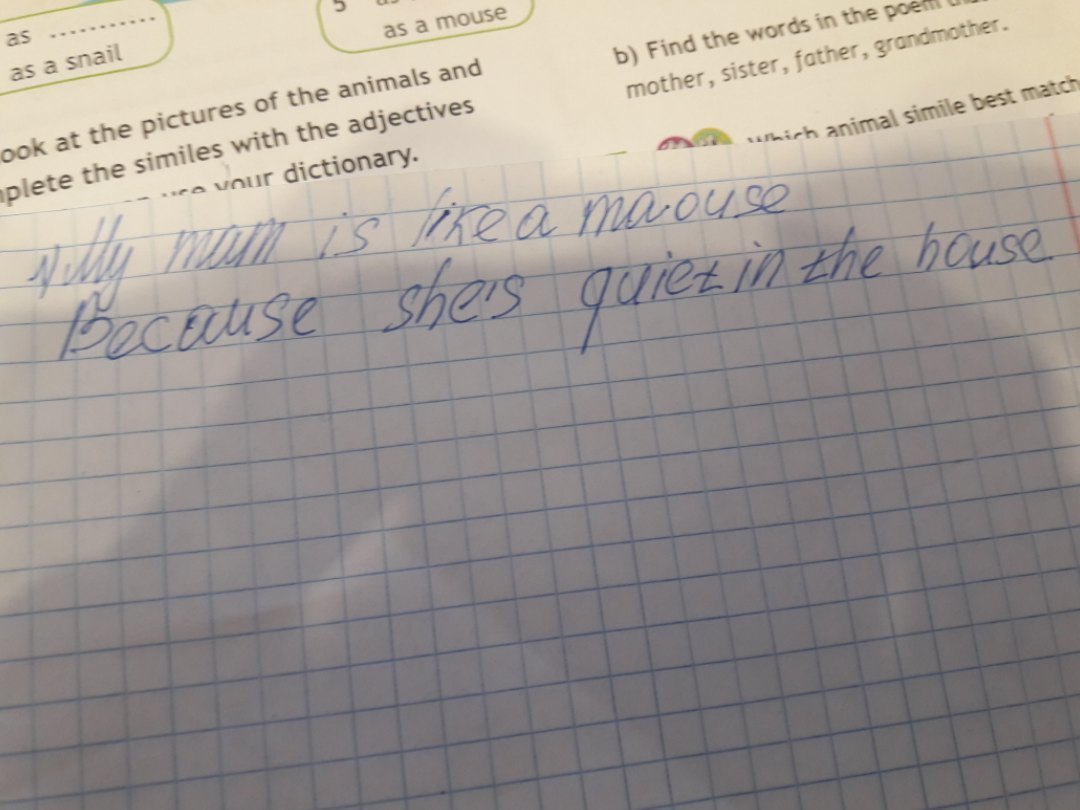 as ............
as a snail
5
as a mouse
ook at the pictures of the animals and
plete the similes with the adjectives
your dictionary.
b) Find the words in the poem
mother, sister, father, grandmother.
Which animal simile best match
My mum is like a maouse
Because she's quiet in the house.